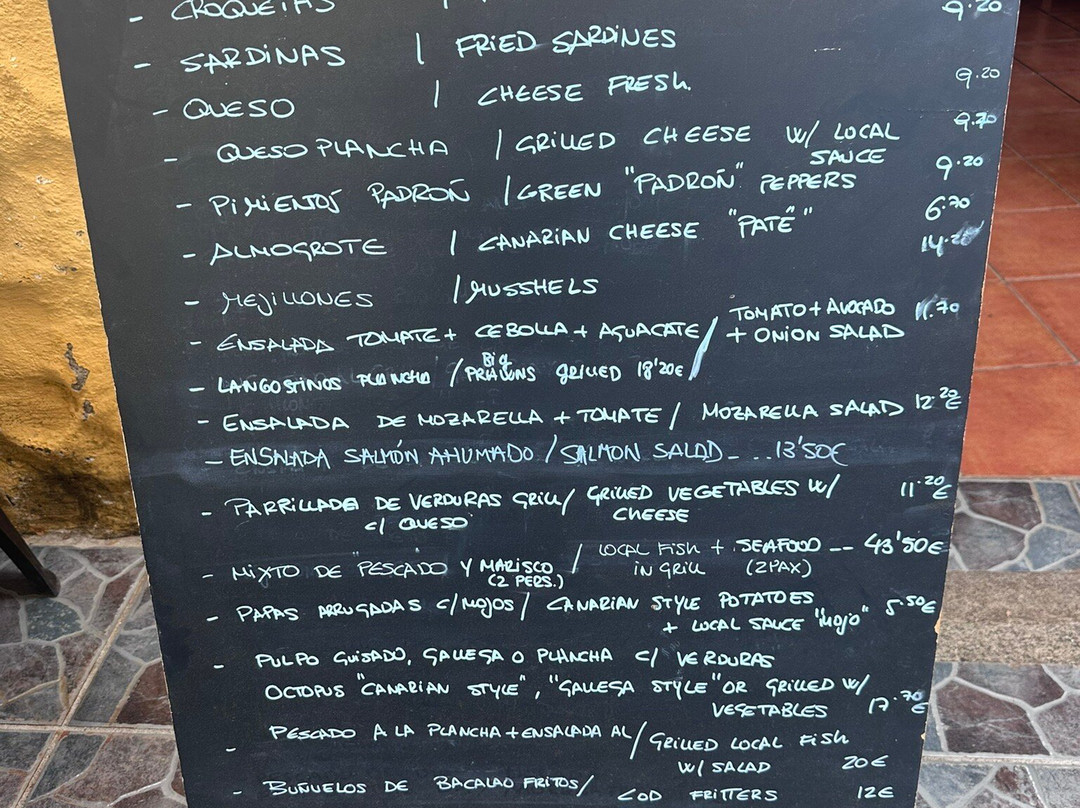 - CROQUETAS / 9.20
- SARDINAS | FRIED SARDINES 9.20
- QUESO | CHEESE FRESH. 9.20
- QUESO PLANCHA / GRILLED CHEESE W/ LOCAL SAUCE 9.20
- PIMIENTOS PADROÑ / GREEN "PADROÑ" PEPPERS 6.70
- ALMOGROTE | CANARIAN CHEESE "PATÉ" 14.20
- MEJILLONES / MUSSHELS 11.70
- ENSALADA TOMATE + CEBOLLA + AGUACATE / TOMATO + AVOCADO + ONION SALAD
- LANGOSTINOS PLANCHA / BIG PRAWNS GRILLED 18'20€
- ENSALADA DE MOZARELLA + TOMATE / MOZARELLA SALAD 12.20€
- ENSALADA SALMÓN AHUMADO / SALMON SALAD - ... 13'50€
- PARRILLADA DE VERDURAS GRILL / GRILLED VEGETABLES W/ 11.20€
C/ QUESO CHEESE
- MIXTO DE PESCADO Y MARISCO / LOCAL FISH + SEAFOOD -- 43'50€
(2 PERS.) IN GRILL (2PAX)
- PAPAS ARRUGADAS C/MOJOS / CANARIAN STYLE POTATOES 5.50€
+ LOCAL SAUCE "MOJO"
- PULPO GUISADO, GALLEGA O PLANCHA C/ VERDURAS
OCTOPUS "CANARIAN STYLE", "GALLEGA STYLE" OR GRILLED W/
VEGETABLES 17.70€
- PESCADO A LA PLANCHA + ENSALADA AL / GRILLED LOCAL FISH
W/ SALAD 20€
- BUÑUELOS DE BACALAO FRITOS / COD FRITTERS 12€